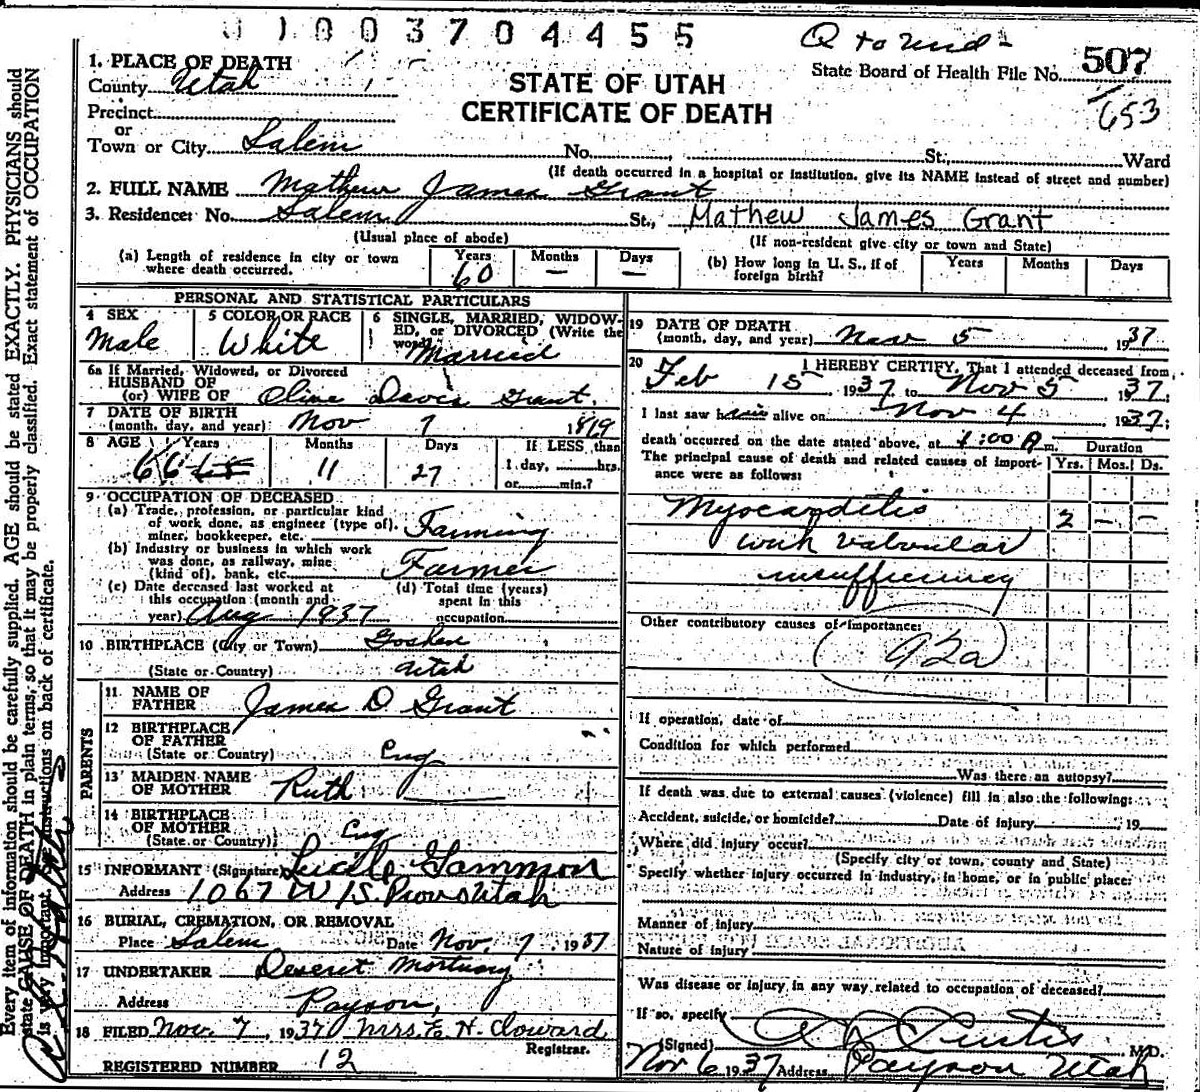 0 1 0 0 3 7 0 4 4 5 5
1. PLACE OF DEATH
County Utah
Precinct
or
Town or City Salem No. St., Ward
STATE OF UTAH
CERTIFICATE OF DEATH
State Board of Health File No. 507
653
(If death occurred in a hospital or institution, give its NAME instead of street and number)
2. FULL NAME Mathew James Grant
3. Residence: No. Salem St., Mathew James Grant
(Usual place of abode) (If non-resident give city or town and State)
(a) Length of residence in city or town where death occurred. Years 60 Months — Days —
(b) How long in U. S., if of foreign birth? Years Months Days
PERSONAL AND STATISTICAL PARTICULARS
4 SEX Male
5 COLOR OR RACE White
6 SINGLE, MARRIED, WIDOWED, or DIVORCED (Write the word) Married
6a If Married, Widowed, or Divorced
HUSBAND OF
(or) WIFE OF Davis Grant.
7 DATE OF BIRTH
(month, day, and year) Nov
8 AGE Years 66 Months 11 Days 27
If LESS than
1 day, hrs.
or min.?
9 OCCUPATION OF DECEASED
(a) Trade, profession, or particular kind
of work done, as engineer (type of),
miner, bookkeeper, etc. Farming
(b) Industry or business in which work
was done, as railway, mine
(kind of), bank, etc. Farmer
(c) Date deceased last worked at
this occupation (month and
year) Aug 1937
(d) Total time (years)
spent in this
occupation
10 BIRTHPLACE (City or Town) Goshen
(State or Country) Utah
PARENTS
11 NAME OF
FATHER James D Grant
12 BIRTHPLACE
OF FATHER
(State or Country) Eng
13 MAIDEN NAME
OF MOTHER Ruth
14 BIRTHPLACE
OF MOTHER
(State or Country) Eng
15 INFORMANT (Signature) Lucile Gammon
Address 1067 W 1 S. Provo Utah
16 BURIAL, CREMATION, OR REMOVAL
Place Salem Date Nov. 7 1937
17 UNDERTAKER Deseret Mortuary
Address Payson,
18 FILED Nov. 7, 1937 Mrs. E. H. Cloward
Registrar.
REGISTERED NUMBER 12
19 DATE OF DEATH
(month, day, and year) Nov 5 1937
20 I HEREBY CERTIFY, That I attended deceased from
Feb 15 1937 to Nov 5 1937;
I last saw him alive on Nov 4 1937;
death occurred on the date stated above, at 1:00 A m. Duration
The principal cause of death and related causes of importance were as follows: Yrs. Mos. Ds.
Myocarditis 2 — —
with valvular
insufficiency
Other contributory causes of importance:
92a
If operation, date of
Condition for which performed
Was there an autopsy?
If death was due to external causes (violence) fill in also the following:
Accident, suicide, or homicide? Date of injury 19
Where did injury occur?
(Specify city or town, county and State)
Specify whether injury occurred in industry, in home, or in public place:
Manner of injury
Nature of injury
Was disease or injury in any way related to occupation of deceased?
If so, specify
(Signed) Curtis M.D.
Nov 6 1937 Address Payson Utah
Every item of information should be carefully supplied. AGE should be stated EXACTLY. PHYSICIANS should
state CAUSE OF DEATH in plain terms, so that it may be properly classified. Exact statement of OCCUPATION
is very important. See instructions on back of certificate.